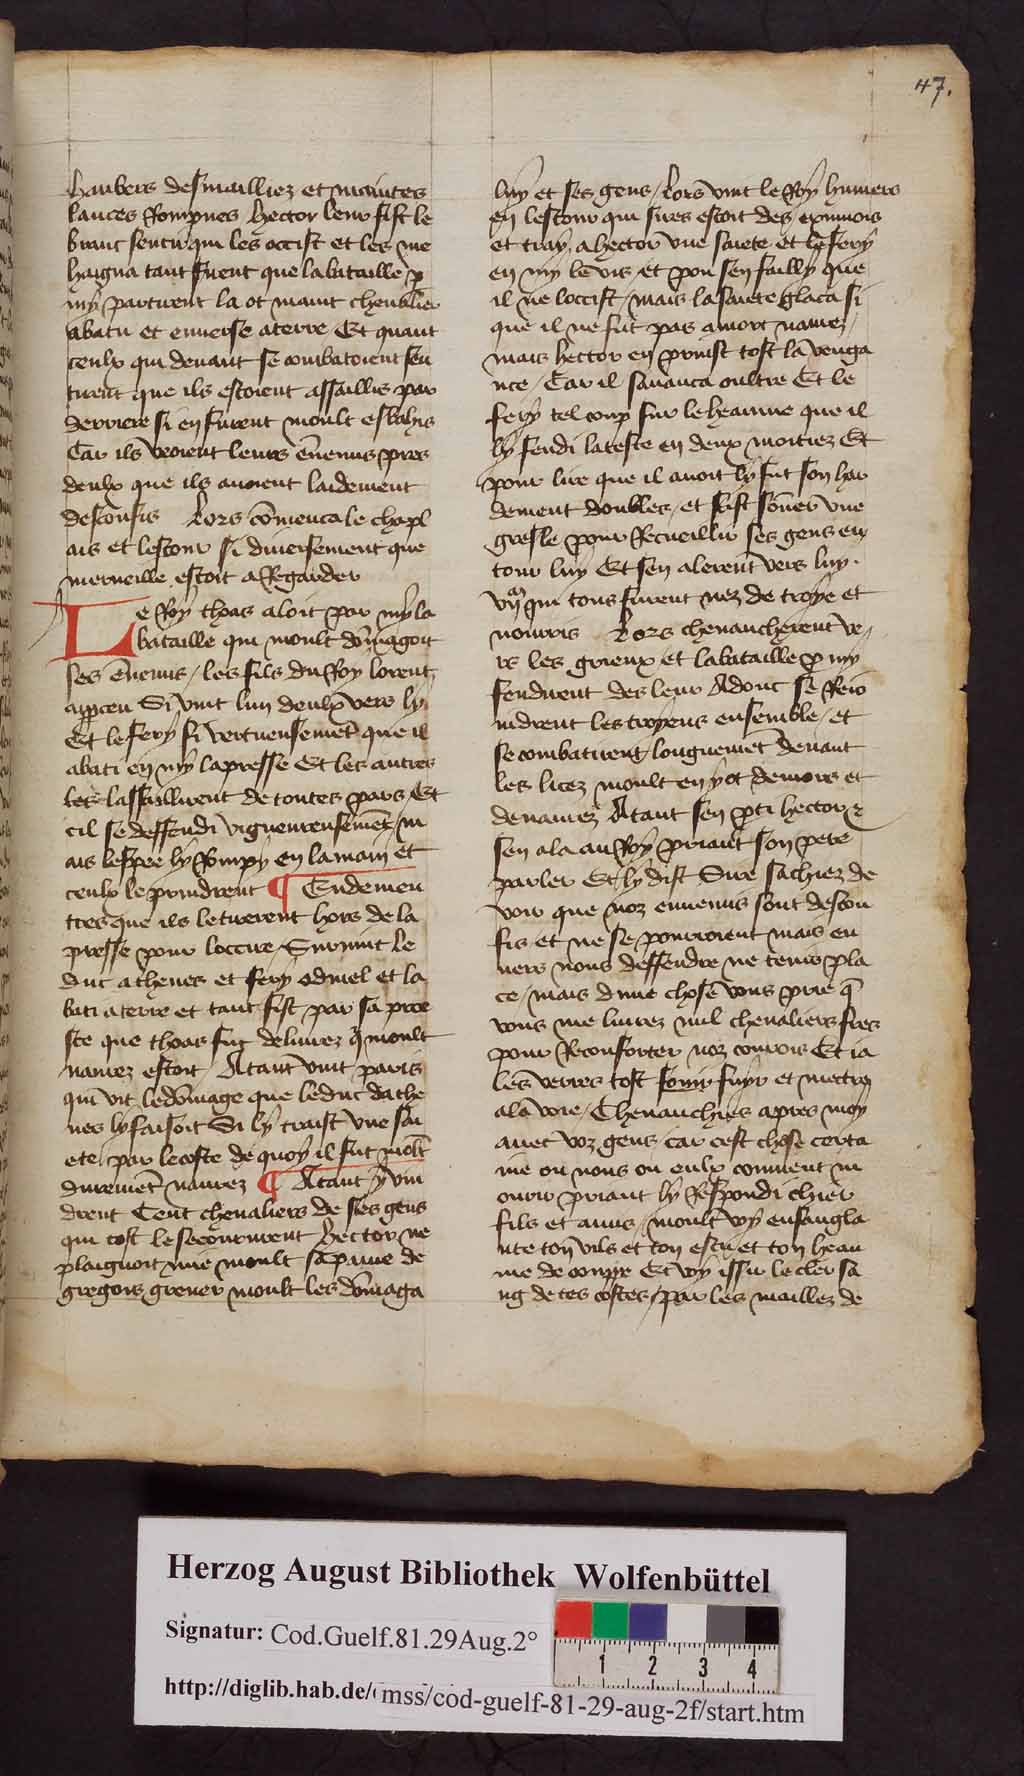 47.
haubers desmailliez et maintes
lances Rompues hector leur fist le
branc sentir qui les occist et les me
haigna tant firent que la bataille p
my partirent la ot maint cheualier
abatu et enuerse a terre Et quant
ceulx qui deuant se combatoient sen
tirent que ils estoient assaillis par
derriere si en furent moult esbahis
Car ils veoient leurs ennemis pres
deulx que ils auoient laidement
desconfis Lors comenca le chapl
ais et lestour si diuersement que
merueille estoit a Regarder
Le Roy thoas aloit par my la
bataille qui moult domagoit
ses ennemis / les fils du Roy lorent
apperceu Si vint lun deulx vers ly
Et le fery si vertueusement que il
abati en my la presse Et les autres
les lassaillirent de toutes pars Et
cil se deffendi viguereusement m
ais lespee ly Rompy en la main et
ceulx le prindrent ¶ Endemen
tres que ils le tirerent hors de la
presse pour loccire / Suruint le
duc athenes et fery odinel et la
bati a terre et tant fist par sa proe
sce que thoas fut deliurez q moult
naurez estoit / Atant vint paris
qui vit le domage que le duc dathe
nes ly faisoit Si ly traist vne sai
ete par le coste de quoy il fut molt
durement naurez ¶ Atant y vin
drent Cent cheualiers de ses gens
qui tost le secoururent hector ne
plaignoit mie moult sa paine de
gregois greuer moult les domaga
luy et ses gens / Lors vint le Roy humers
en lestour qui sires estoit des
et tray a hector vne saiete et le fery
en my le vis et pou sen failly que
il ne loccist / mais la saiete glaca si
que il ne fut pas a mort naurez /
mais hector en prinst tost la venga
nce / Car il sauanca oultre Et le
fery tel coup sur le heaume que il
ly fendi la teste en deux moitiez Et
pour lire que il auoit ly fut son har
dement doublez / et fist soner vne
gresle pour Recueillir ses gens en
tour luy Et sen alerent vers luy .
qui tous furent nez de troye et
nourris Lors cheuaucherent ve
rs les grieux et la bataille p my
fendirent des leur Adonc se Reio
indrent les troyens ensemble / et
se combatirent longuement deuant
les licez moult en y ot de mors et
de naurez Atant sen pti hector
sen ala au Roy priant son pere
parler Et ly dist Sire sachiez de
voir que noz ennemis sont descon
fis et ne se pourroient mais en
uers nous deffendre ne tenir pla
ce / mais dune chose vous prie q
vous me liurez mil cheualiers fres
pour Reconforter noz conrois Et ia
les verres tost fouir fuyr et mectre
a la voie / Cheuauchies apres moy
auec voz gens / car cest chose certa
ine ou nous ou eulx conuient m
ourir priant ly Respondi chier
fils et amis / moult voy ensangla
nte ton vils et ton escu et ton heau
me decoupe Et voy issir le cler sa
ng de tes costes / par les maillez de
Herzog August Bibliothek Wolfenbüttel
Signatur: Cod.Guelf.81.29Aug.2°
1 2 3 4
http://diglib.hab.de/mss/cod-guelf-81-29-aug-2f/start.htm